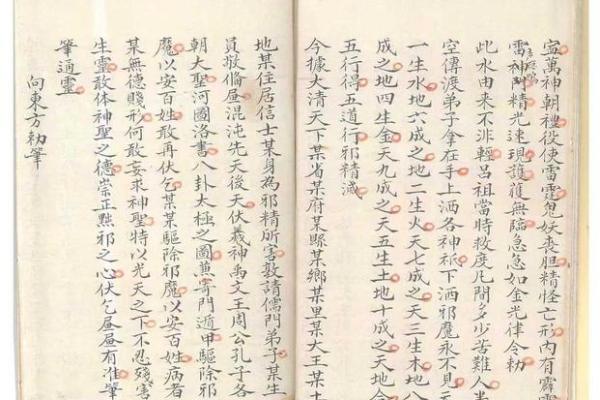 宣萬神朝禮役使雷霆鬼妖喪胆精怪亡形內有霹靂
雷神門精光速現護䕶無臨急急如金光律令勅
此水由來不非輕吕祖當時救度凡間多少苦難人
空傳渡弟子拿在手上洒各神祇下洒邪魔永不見
一生水地六成之地二生火天七成之天三生木地八
成之地四生金天九成之天五生土地十成之天地
五行得五道行邪精滅
今據大清天下某省某府某縣某鄉某里某大王某
地某住居信士某身為邪精所害敦請儒門弟子某生
員敬備昼混沌先天後天伏羲神禹文王周公孔子各
朝大聖河圖洛書八卦太極之圖蕉寄門遁甲驅除邪
魔以安百姓敢再伏乞某某驅除邪魔以安百姓病者
某無德賤形何敢妄求神聖特以光天之下不忍殘害
生靈敢体神聖之德崇正黜邪之心伏乞昼昼有准筆
筆通靈
向東方勅筆